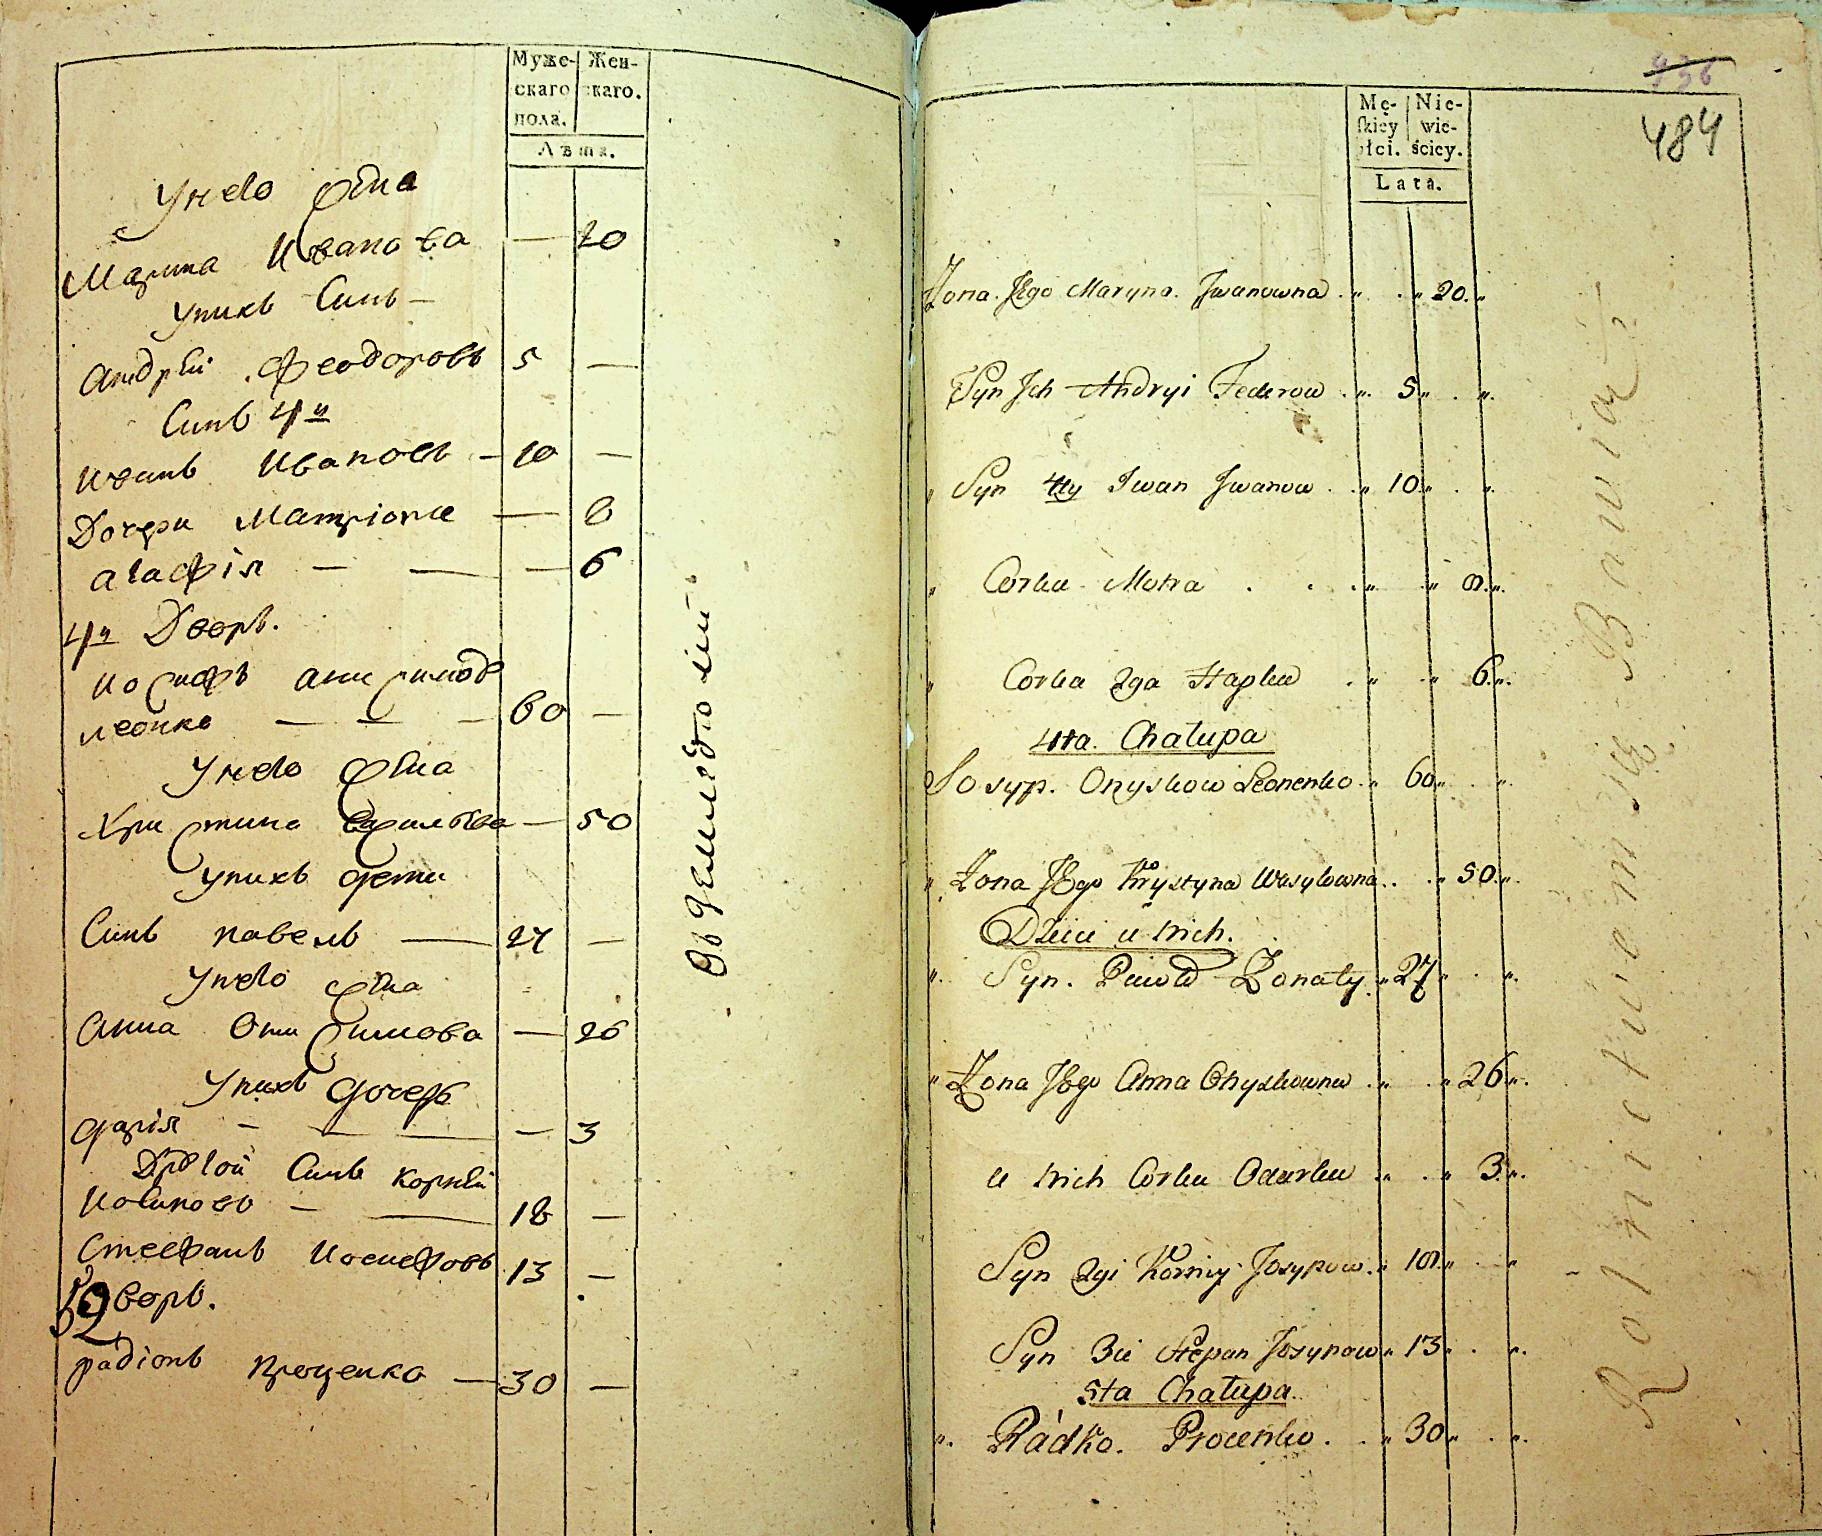 Муже-
скаго
пола.
Жен-
скаго.
Лѣта.
Унего жѣна
Марина Иванова — 20
Унихъ Синъ —
Андрѣй Феодоровъ 5 —
Синъ 4й
Иванъ Ивановъ — 10 —
Дочери Матріона — 8
Агафія — — — 6
4й Дворъ.
Иосифъ Анисимовъ
леонко — — — 60 —
Унего жѣна
Христина Василѣва — 50
Унихъ дети
Синъ павелъ — 27 —
Унего жѣна
Анна Онисимова — 26
Унихъ дочеръ
дарія — — — — 3
Другой Синъ Корнѣй
Иосиповъ — — 18 —
Стефанъ Иосифовъ 13 —
5й Дворъ.
радіонъ Проценко — 30 —
Въ земледѣлій
936
484
Mę-
skiey
płci.
Nie-
wie-
ściey.
Lata.
Żona Jego Maryna Iwanowna „ . „ 20. „
Syn Ich Andryi Fedorow . „ 5 „ . „
„ Syn 4ty Iwan Iwanow . . „ 10 „ . „
„ Corka Motra . . . „ „ 8. „
„ Corka 2ga Hapka . „ „ 6. „
4ta. Chałupa
Josyp. Onyskow Leonenko . „ 60 „ . „
„ Żona Jego Krystyna Wasylowna . . „ 50. „
Dzieci u nich.
„ Syn. Pawło Żonaty „ 27 „ . „
„ Żona Jego Anna Onyskowna . „ . „ 26 „
u nich Corka Odarka . „ . „ 3. „
Syn 2gi Korniy Josypow . „ 18 „ . „
Syn 3ci Stepan Josypow „ 13 „ . „
5ta Chałupa
„ Rádko. Procenko . . „ 30 „ . „
Rolnictwem się Bawią